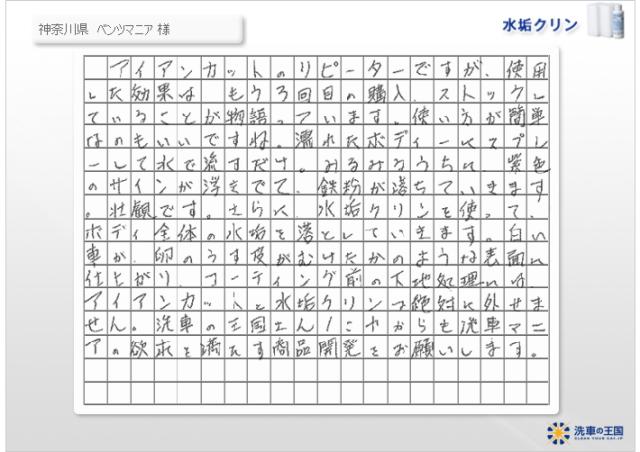 神奈川県 ベンツマニア 様
水垢クリン
アイアンカットのリピーターですが、使用
した効果は もう3回目の購入、ストックし
ていることが物語っています。使い方が簡単
なのもいいですね。濡れたボディーにスプレ
ーして水で流すだけ。みるみるうちに、紫色
のサインが浮きでて、鉄粉が落ちていきます
。壮観です。さらに 水垢クリンを使って、
ボディ全体の水垢を落としていきます。白い
車が、卵のうす皮がむけたかのような表面に
仕上がり、コーティング前の下地処理には、
アイアンカットと水垢クリンは絶対に外せま
せん。洗車の王国さん!これからも洗車マニ
アの欲求を満たす商品開発をお願いします。
洗車の王国
CLEAN YOUR CAR.JP